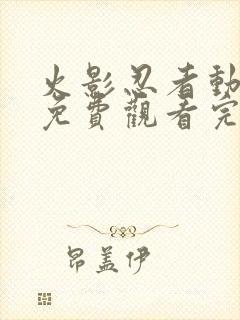 火影忍者動
免費觀看完
昂盖伊